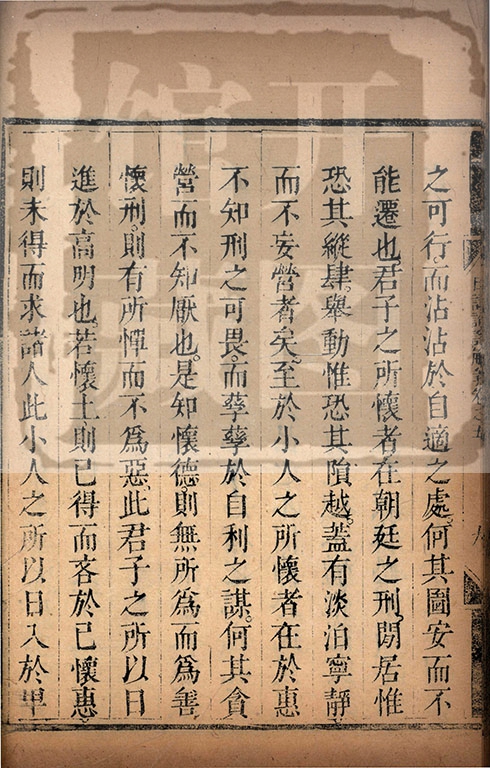 之可行而沾沾於自適之處何其圖安而不
能遷也君子之所懷者在朝廷之刑閒居惟
恐其縱肆舉動惟恐其隕越蓋有淡泊寧靜
而不妄營者矣至於小人之所懷者在於惠
不知刑之可畏而孳孳於自利之謀何其貪
營而不知厭也是知懷德則無所為而為善
懷刑則有所憚而不為惡此君子之所以日
進於高明也若懷土則已得而吝於己懷惠
則未得而求諸人此小人之所以日入於卑